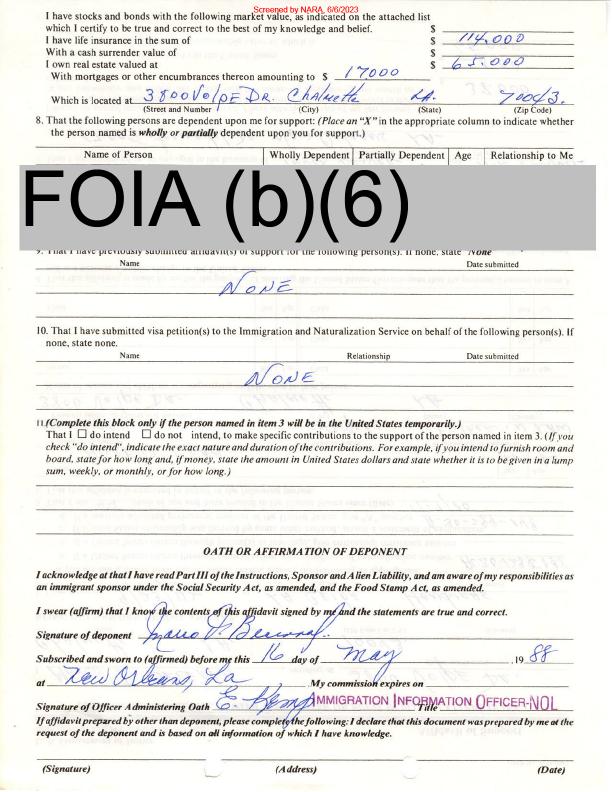 Screened by NARA, 6/6/2023
I have stocks and bonds with the following market value, as indicated on the attached list
which I certify to be true and correct to the best of my knowledge and belief. $
I have life insurance in the sum of $ 114.000
With a cash surrender value of $
I own real estate valued at $ 65.000
With mortgages or other encumbrances thereon amounting to $ 17000
Which is located at 3800 Volpe Dr. Chalmette LA. 70043.
(Street and Number) (City) (State) (Zip Code)
8. That the following persons are dependent upon me for support: (Place an "X" in the appropriate column to indicate whether
the person named is wholly or partially dependent upon you for support.)
Name of Person Wholly Dependent Partially Dependent Age Relationship to Me
FOIA (b)(6)
9. That I have previously submitted affidavit(s) of support for the following person(s). If none, state "None"
Name Date submitted
NONE
10. That I have submitted visa petition(s) to the Immigration and Naturalization Service on behalf of the following person(s). If
none, state none.
Name Relationship Date submitted
NONE
11. (Complete this block only if the person named in item 3 will be in the United States temporarily.)
That I ☐ do intend ☐ do not intend, to make specific contributions to the support of the person named in item 3. (If you
check "do intend", indicate the exact nature and duration of the contributions. For example, if you intend to furnish room and
board, state for how long and, if money, state the amount in United States dollars and state whether it is to be given in a lump
sum, weekly, or monthly, or for how long.)
OATH OR AFFIRMATION OF DEPONENT
I acknowledge at that I have read Part III of the Instructions, Sponsor and Alien Liability, and am aware of my responsibilities as
an immigrant sponsor under the Social Security Act, as amended, and the Food Stamp Act, as amended.
I swear (affirm) that I know the contents of this affidavit signed by me and the statements are true and correct.
Signature of deponent
Subscribed and sworn to (affirmed) before me this 16 day of May , 19 88
at New Orleans, La My commission expires on
Signature of Officer Administering Oath E. Kemp IMMIGRATION INFORMATION OFFICER-NOL Title
If affidavit prepared by other than deponent, please complete the following: I declare that this document was prepared by me at the
request of the deponent and is based on all information of which I have knowledge.
(Signature) (Address) (Date)